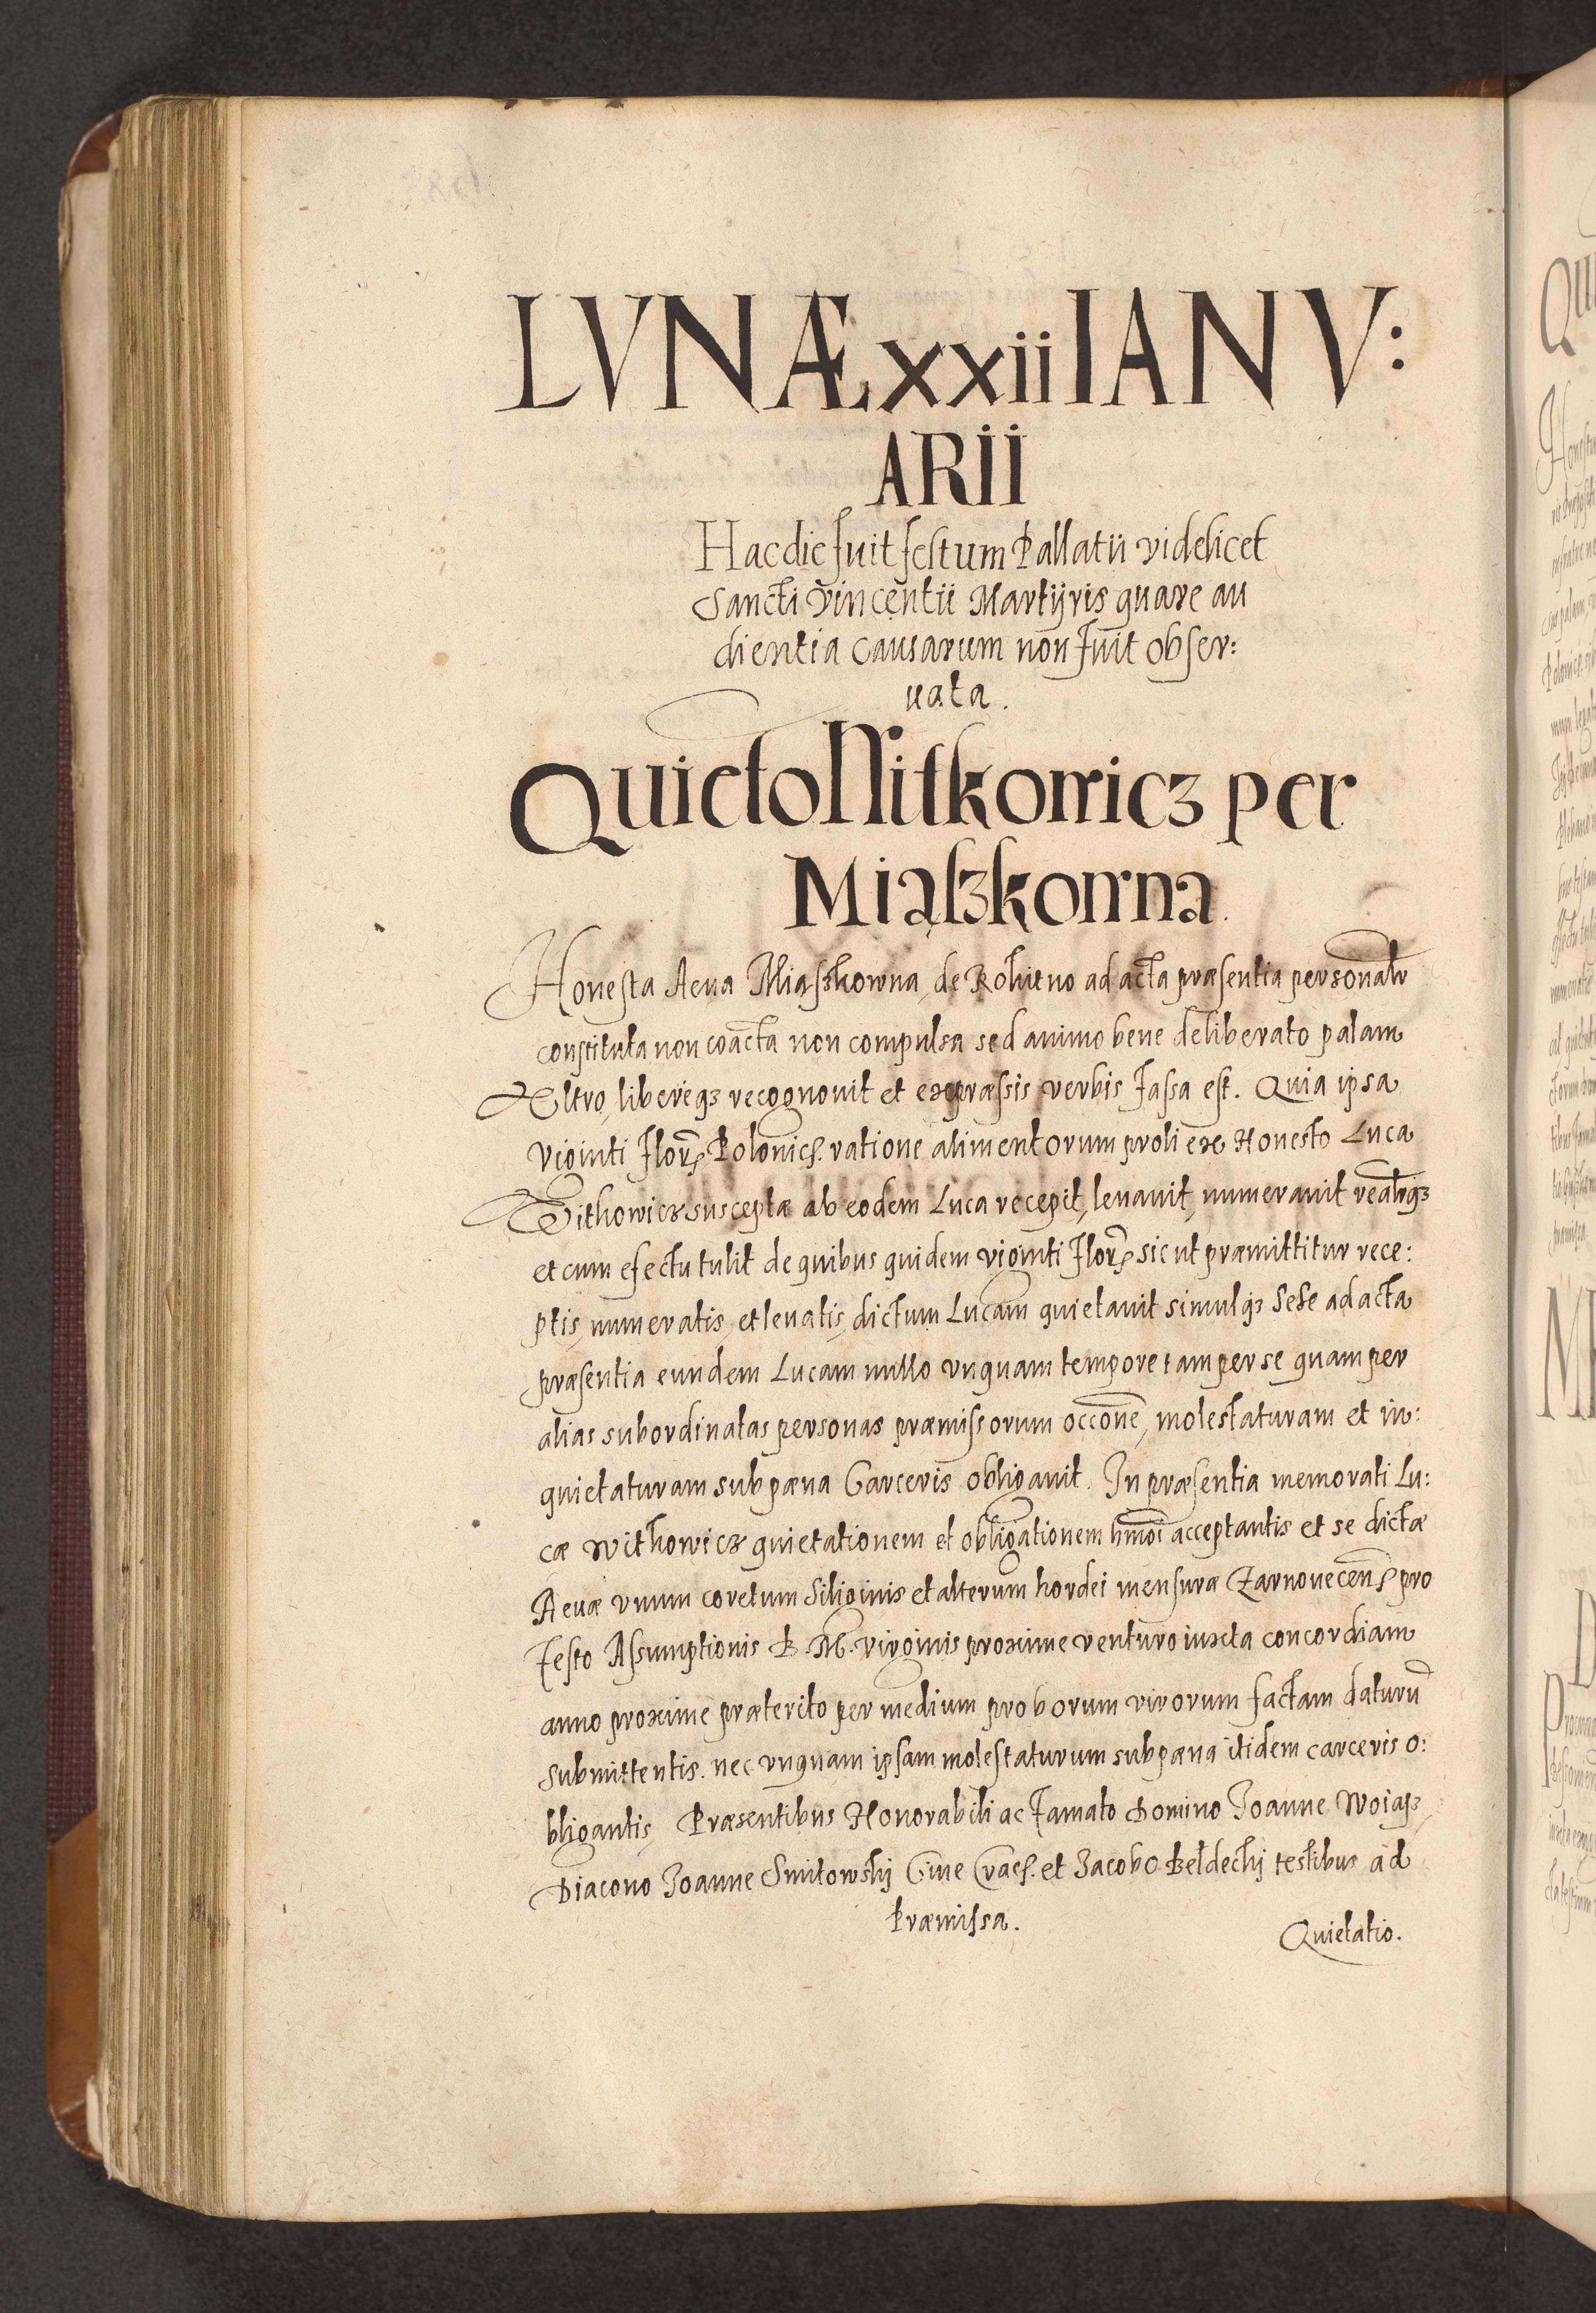 LVNÆ xxii IANV:
ARii
Hac die fuit festum Pallatii videlicet
Sancti Vincentii Martÿris quare au
dientia causarum non fuit obser:
uata.
Quieto Nitkowicz per
Miaszkowna.
Honesta Aeua Miaszkowna de Rokitno ad acta præsentia personalr
constituta non coacta non compulsa sed animo bene deliberato palam
Vltro, libereq3 recognouit et expræssis verbis fassa est. Quia ipsa
Viginti flor Polonic. ratione alimentorum proli ex Honesto Luca
Withowicz susceptæ ab eodem Luca recepit, leuauit, numerauit realrq3
et cum efectu tulit de quibus quidem viginti flor sic ut præmittitur rece:
ptis, numeratis, et leuatis, dictum Lucam quietauit simulq3 sese ad acta
præsentia eundem Lucam nullo vnquam tempore tam per se quam per
alias subordinatas personas præmissorum occone, molestaturam et in:
quietaturam sub pæna Carceris obligauit. In præsentia memorati Lu:
cæ Withowicz quietationem et obligationem hmoi acceptantis et se dictæ
Aeuæ vnum coretum siliginis et alterum hordei mensuræ Zarnouecens pro
festo Assumptionis B. M. virginis proxime venturo iuxta concordiam
anno proxime præterito per medium proborum virorum factam daturu
submittentis. nec vnquam ipsam molestaturum sub pæna itidem carceris o:
bligantis, Præsentibus Honorabili ac famato Domino Joanne Woiasz,
Diacono Joanne Smitowskÿ Ciue Crac. et Jacobo Beldechÿ testibus ad
Præmissa.
Quietatio.